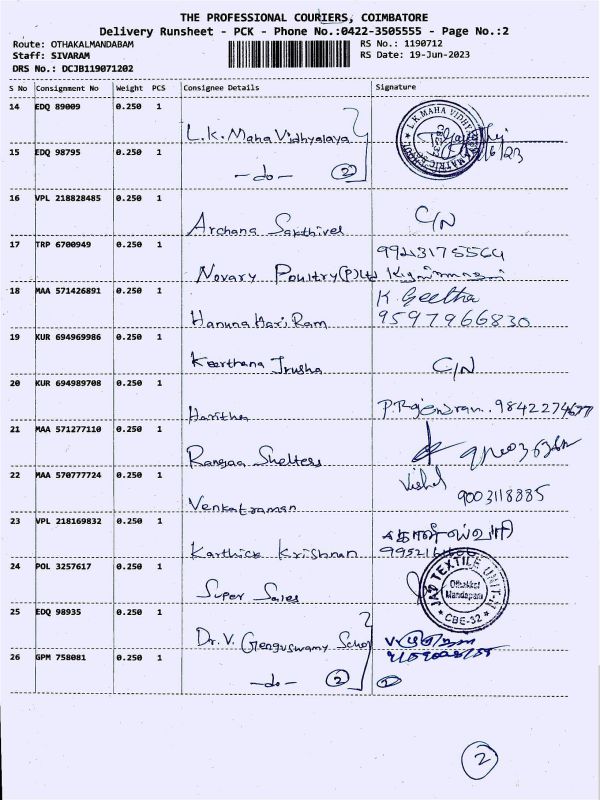 THE PROFESSIONAL COURIERS, COIMBATORE
Delivery Runsheet - PCK - Phone No.:0422-3505555 - Page No.:2
Route: OTHAKALMANDABAM
RS No.: 1190712
Staff: SIVARAM
RS Date: 19-Jun-2023
DRS No.: DCJB119071202
S No Consignment No Weight PCS Consignee Details Signature
14 EDQ 89009 0.250 1
L.K. Maha Vidhyalaya
15 EDQ 98795 0.250 1
-do- 2
16 VPL 218828485 0.250 1
Archana Sakthivel C/N
17 TRP 6700949 0.250 1
Novary Poultry(P)Ltd
18 MAA 571426891 0.250 1
K Geetha
Hanuna Hari Ram 9597966830
19 KUR 694969986 0.250 1
Keerthana Trusha C/N
20 KUR 694989708 0.250 1
Haritha
21 MAA 571277110 0.250 1
Rangaa Shelters
22 MAA 570777724 0.250 1
Vishal
Venkatraman 9003118885
23 VPL 218169832 0.250 1
Karthick Krishnan
24 POL 3257617 0.250 1
Super Sales
JAD TEXTILE UNIT-II
Othakkal
Mandapam
* CBE-32 *
25 EDQ 98935 0.250 1
Dr. V. Genguswamy School
26 GPM 758081 0.250 1
-do- 2
2